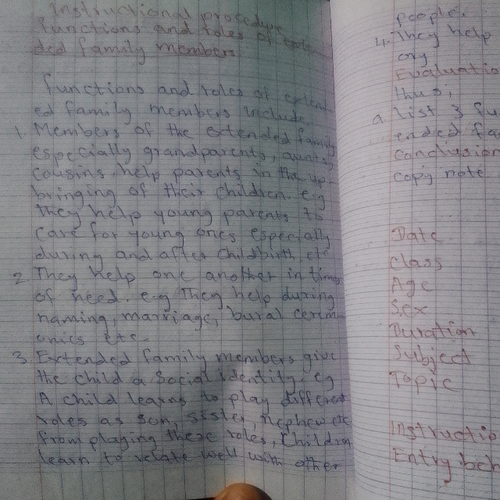 Instructional procedure
functions and roles of exten
ded family members
functions and roles of extend
ed family members include
1. Members of the extended family
especially grandparents, aunts,
cousins help parents in the up-
bringing of their children. e.g
They help young parents to
care for young ones especially
during and after childbirth, etc
2 They help one another in times
of need. e.g They help during
naming, marriage, burial cerem
onies etc.
3. Extended family members give
the child a social identity. e.g
A child learns to play different
roles as son, sister, nephew etc
From playing these roles, children
learn to relate well with other
people.
4. They help
Evaluatio
thus,
a list 3 fu
ended fa
Conclusion
copy note
Date
Class
Age
Sex
Duration
Subject
Topic
Instructio
Entry beh